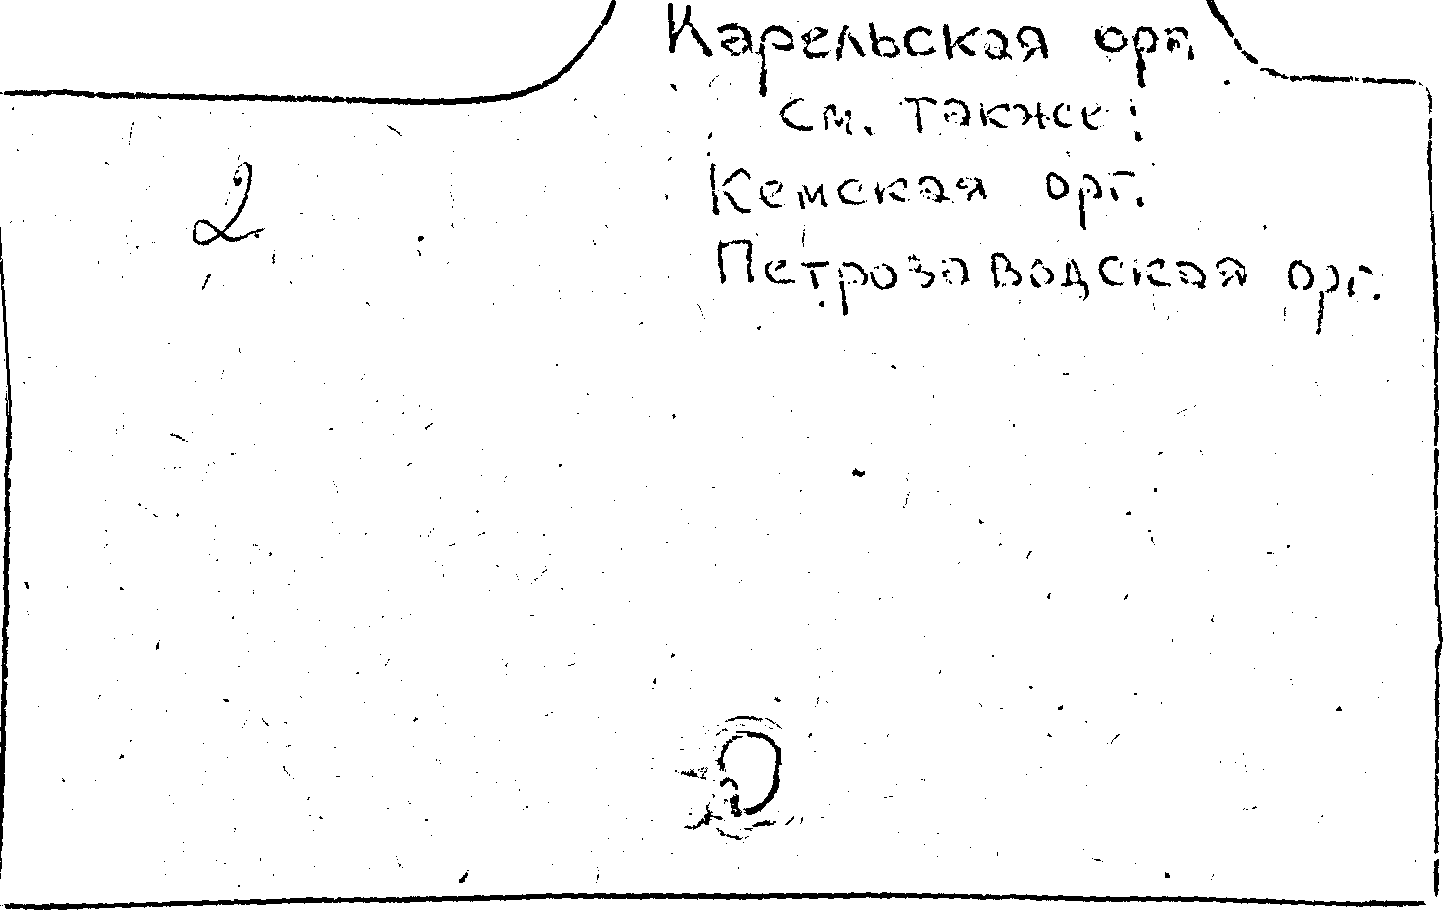 Карельская орг.
см. также:
2
Кемская орг.
Петрозаводская орг.